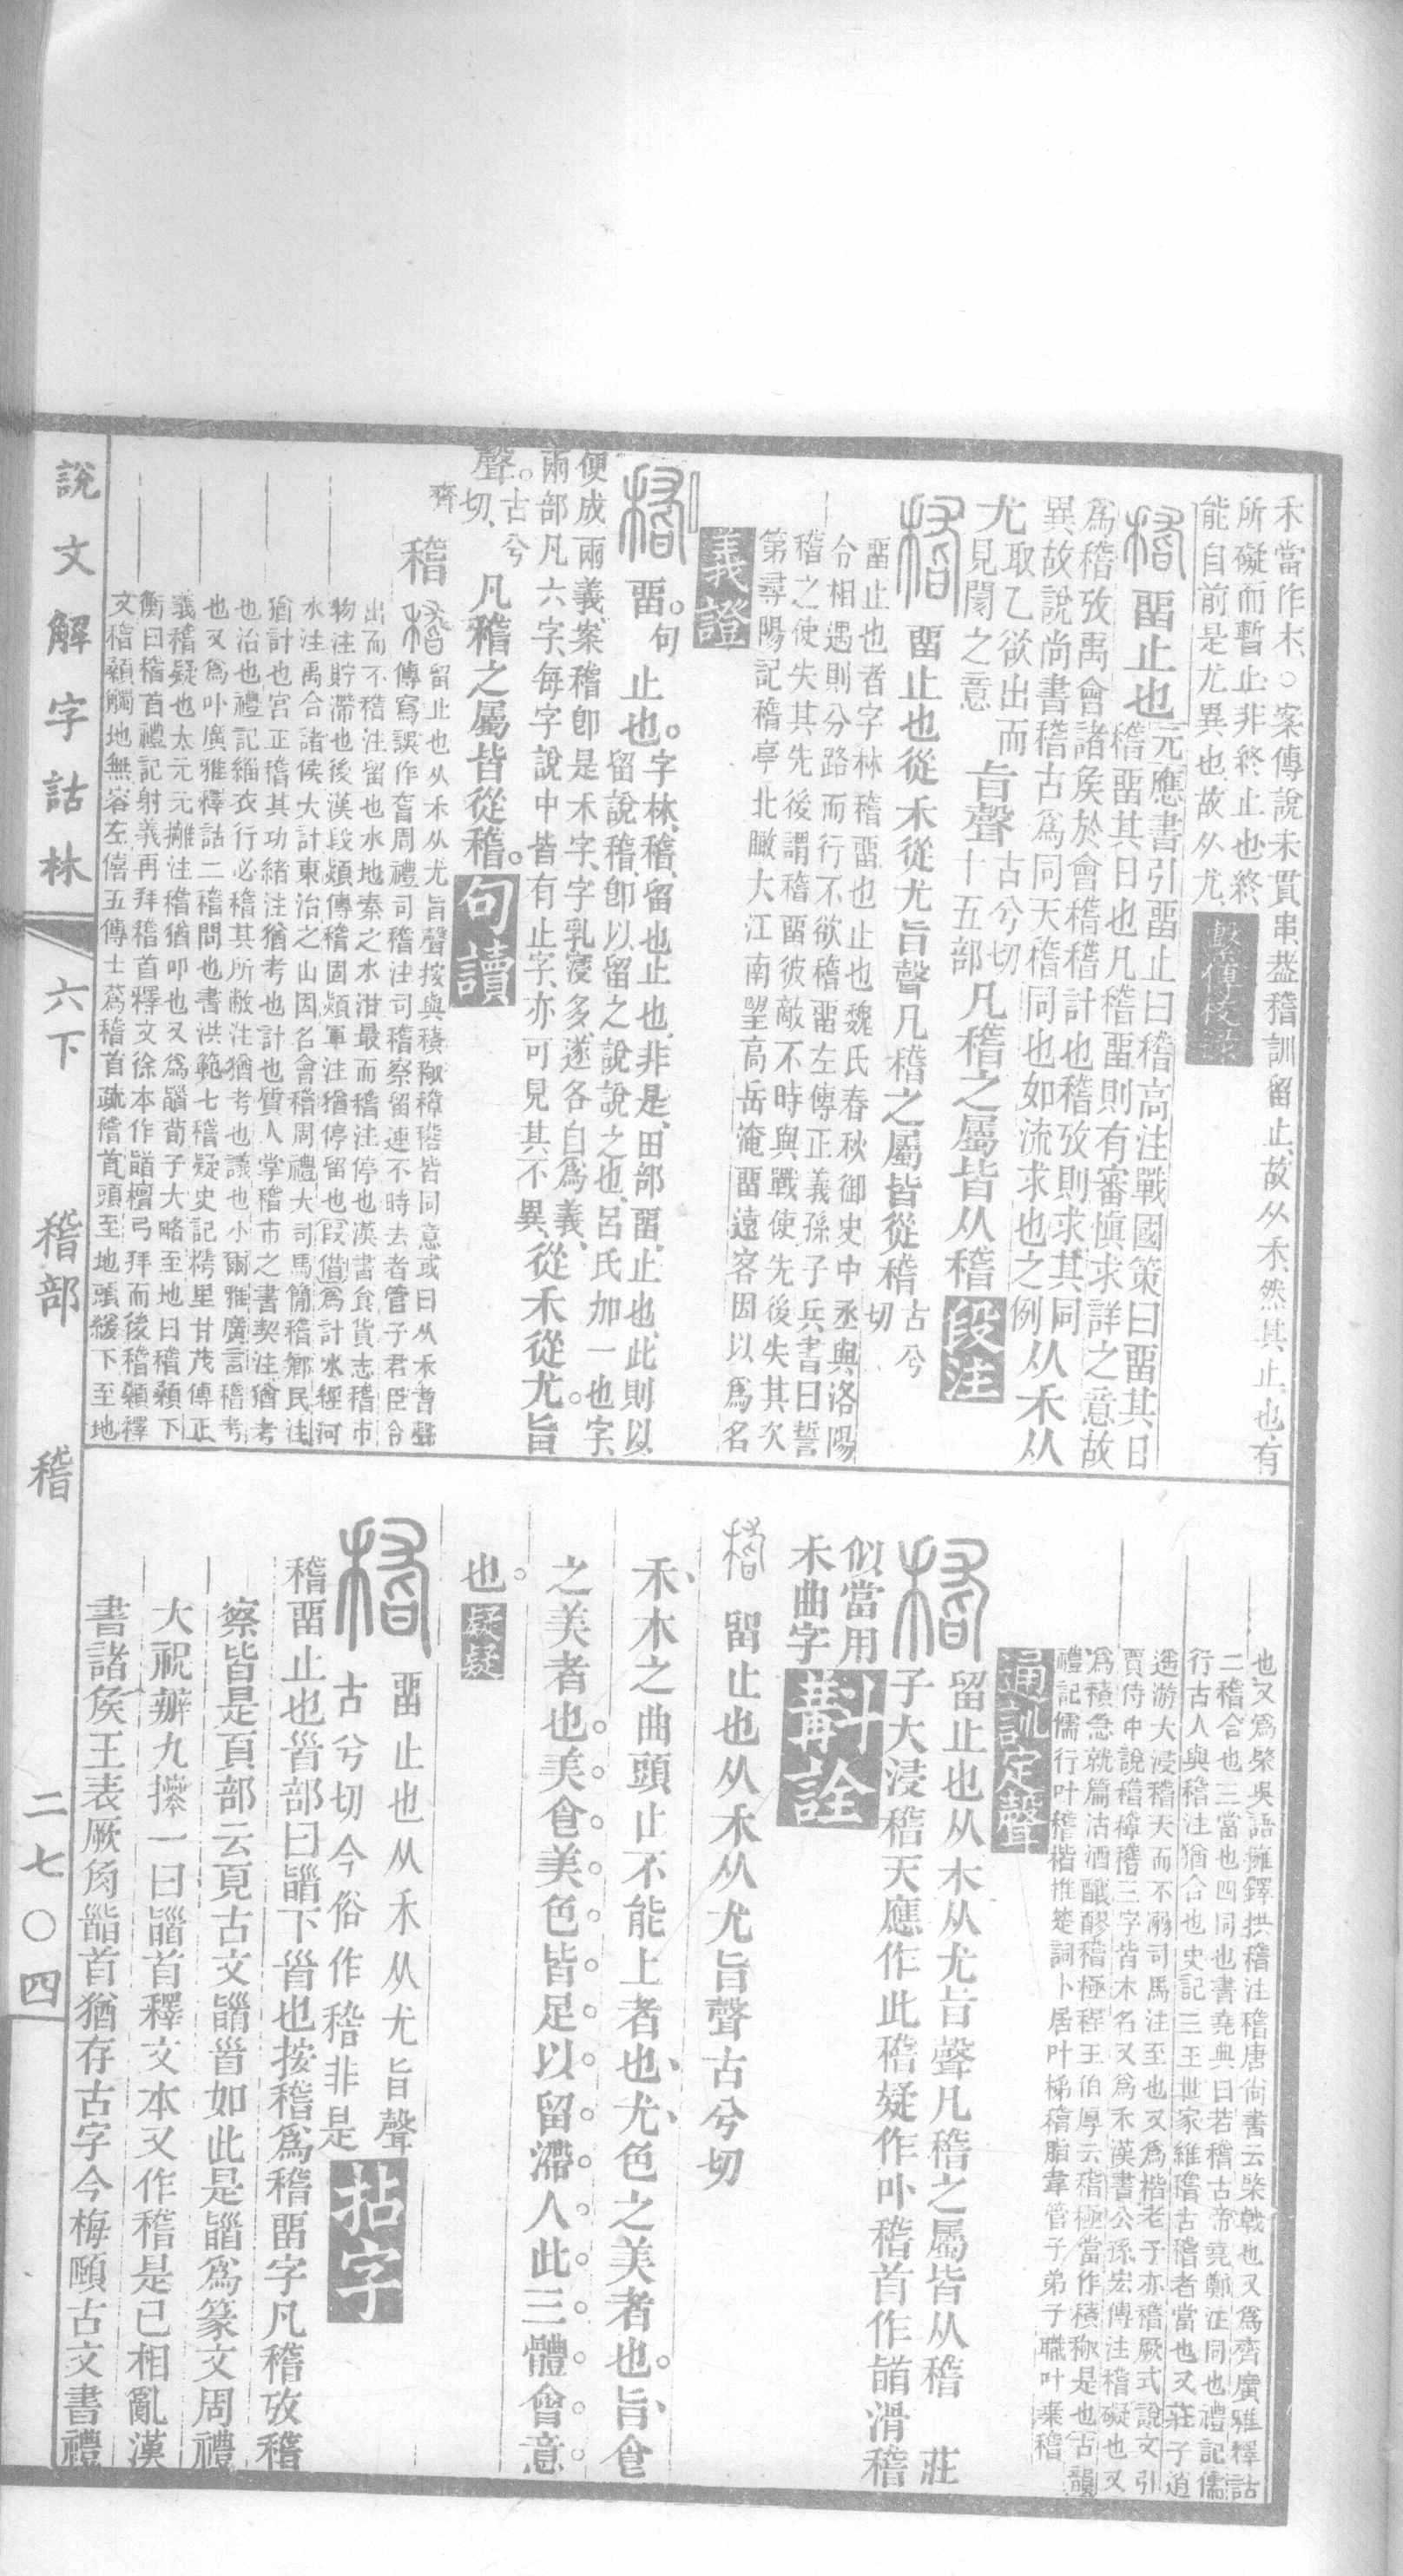 禾當作木○案傳說未貫串葢稽訓留止故从禾然其止也有
所礙而暫止非終止也終
能自前是尤異也故从尤
繫傳校錄
畱止也
元應書引畱止曰稽高注戰國策曰畱其日
稽畱其日也凡稽畱則有審愼求詳之意故
爲稽攷禹會諸矦於會稽稽計也稽攷則求其同
異故說尚書稽古爲同天稽同也如流求也之例
从禾从
尤
取乙欲出而
見閡之意
旨聲
古兮切
十五部
凡稽之屬皆从稽
段注
畱止也從禾從尤旨聲凡稽之屬皆從稽
古兮
切
畱止也者字林稽畱也止也魏氏春秋御史中丞與洛陽
令相遇則分路而行不欲稽畱左傳正義孫子兵書曰誓
稽之使失其先後謂稽畱彼敵不時與戰使先後失其次
第尋陽記稽亭北瞰大江南望高岳淹畱遠客因以爲名
義證
畱句止也
字林稽留也止也非是田部畱止也此則以
留說稽卽以留之說說之也呂氏加一也字
便成兩義案稽卽是禾字字乳寖多遂各自爲義
兩部凡六字每字說中皆有止字亦可見其不異
從禾從尤旨
聲
古兮
切
凡稽之屬皆從稽
句讀
齊
稽
留止也从禾从尤旨聲按與𥡴𥡜穕䅵皆同意或曰从禾耆聲
傳寫誤作㫖周禮司稽注司稽察留連不時去者管子君臣令
出而不稽注留也水地秦之水泔最而稽注停也漢書食貨志稽市
物注貯滯也後漢段熲傳稽固熲軍注猶停留也叚借爲計水經河
水注禹合諸侯大計東治之山因名會稽周禮大司馬簡稽鄕民注
猶計也宮正稽其功緒注猶考也計也質人掌稽市之書契注猶考
也治也禮記緇衣行必稽其所敝注猶考也議也小爾雅廣言稽考
也又爲卟廣雅釋詁二稽問也書洪範七稽疑史記樗里甘茂傳正
義稽疑也太元元攡注稽猶叩也又爲䭫荀子大略至地曰稽顙下
衡曰稽首禮記射義再拜稽首釋文徐本作䭫檀弓拜而後稽顙釋
文稽顙觸地無容左僖五傳士蒍稽首疏稽首頭至地頭緩下至地
也又爲棨吳語擁鐸拱稽注稽唐尙書云棨戟也又爲齊廣雅釋詁
二稽合也三當也四同也書堯典曰若稽古帝堯鄭注同也禮記儒
行古人與稽注猶合也史記三王世家維稽古稽者當也又莊子逍
遙游大浸稽天而不溺司馬注至也又爲楷老子亦稽厥式說文引
賈侍中說稽穕䅵三字皆木名又爲禾漢書公孫宏傳注稽礙也又
爲𥡴急就篇沽酒釀醪稽極程王伯厚云稽極當作𥡴𥡜是也古韻
禮記儒行叶稽楷推楚詞卜居叶梯稽脂韋管子弟子職叶棄稽
通訓定聲
留止也从木从尤旨聲凡稽之屬皆从稽莊
子大浸稽天應作此稽疑作卟稽首作䭫滑稽
似當用
禾曲字
斠詮
留止也从禾从尤旨聲古兮切
禾木之曲頭止不能上者也尤色之美者也旨食
之美者也美食美色皆足以留滯人此三體會意
也
疑疑
畱止也从禾从尤旨聲
古兮切今俗作嵇非是
拈字
稽畱止也𩠐部曰䭫下𩠐也按稽爲稽畱字凡稽攷稽
察皆是頁部云頁古文䭫𩠐如此是䭫爲篆文周禮
大祝辨九㨊一曰䭫首釋文本又作稽是已相亂漢
書諸矦王表厥角䭫首猶存古字今梅頤古文書禮
說文解字詁林
六下
稽部
稽
二七〇四